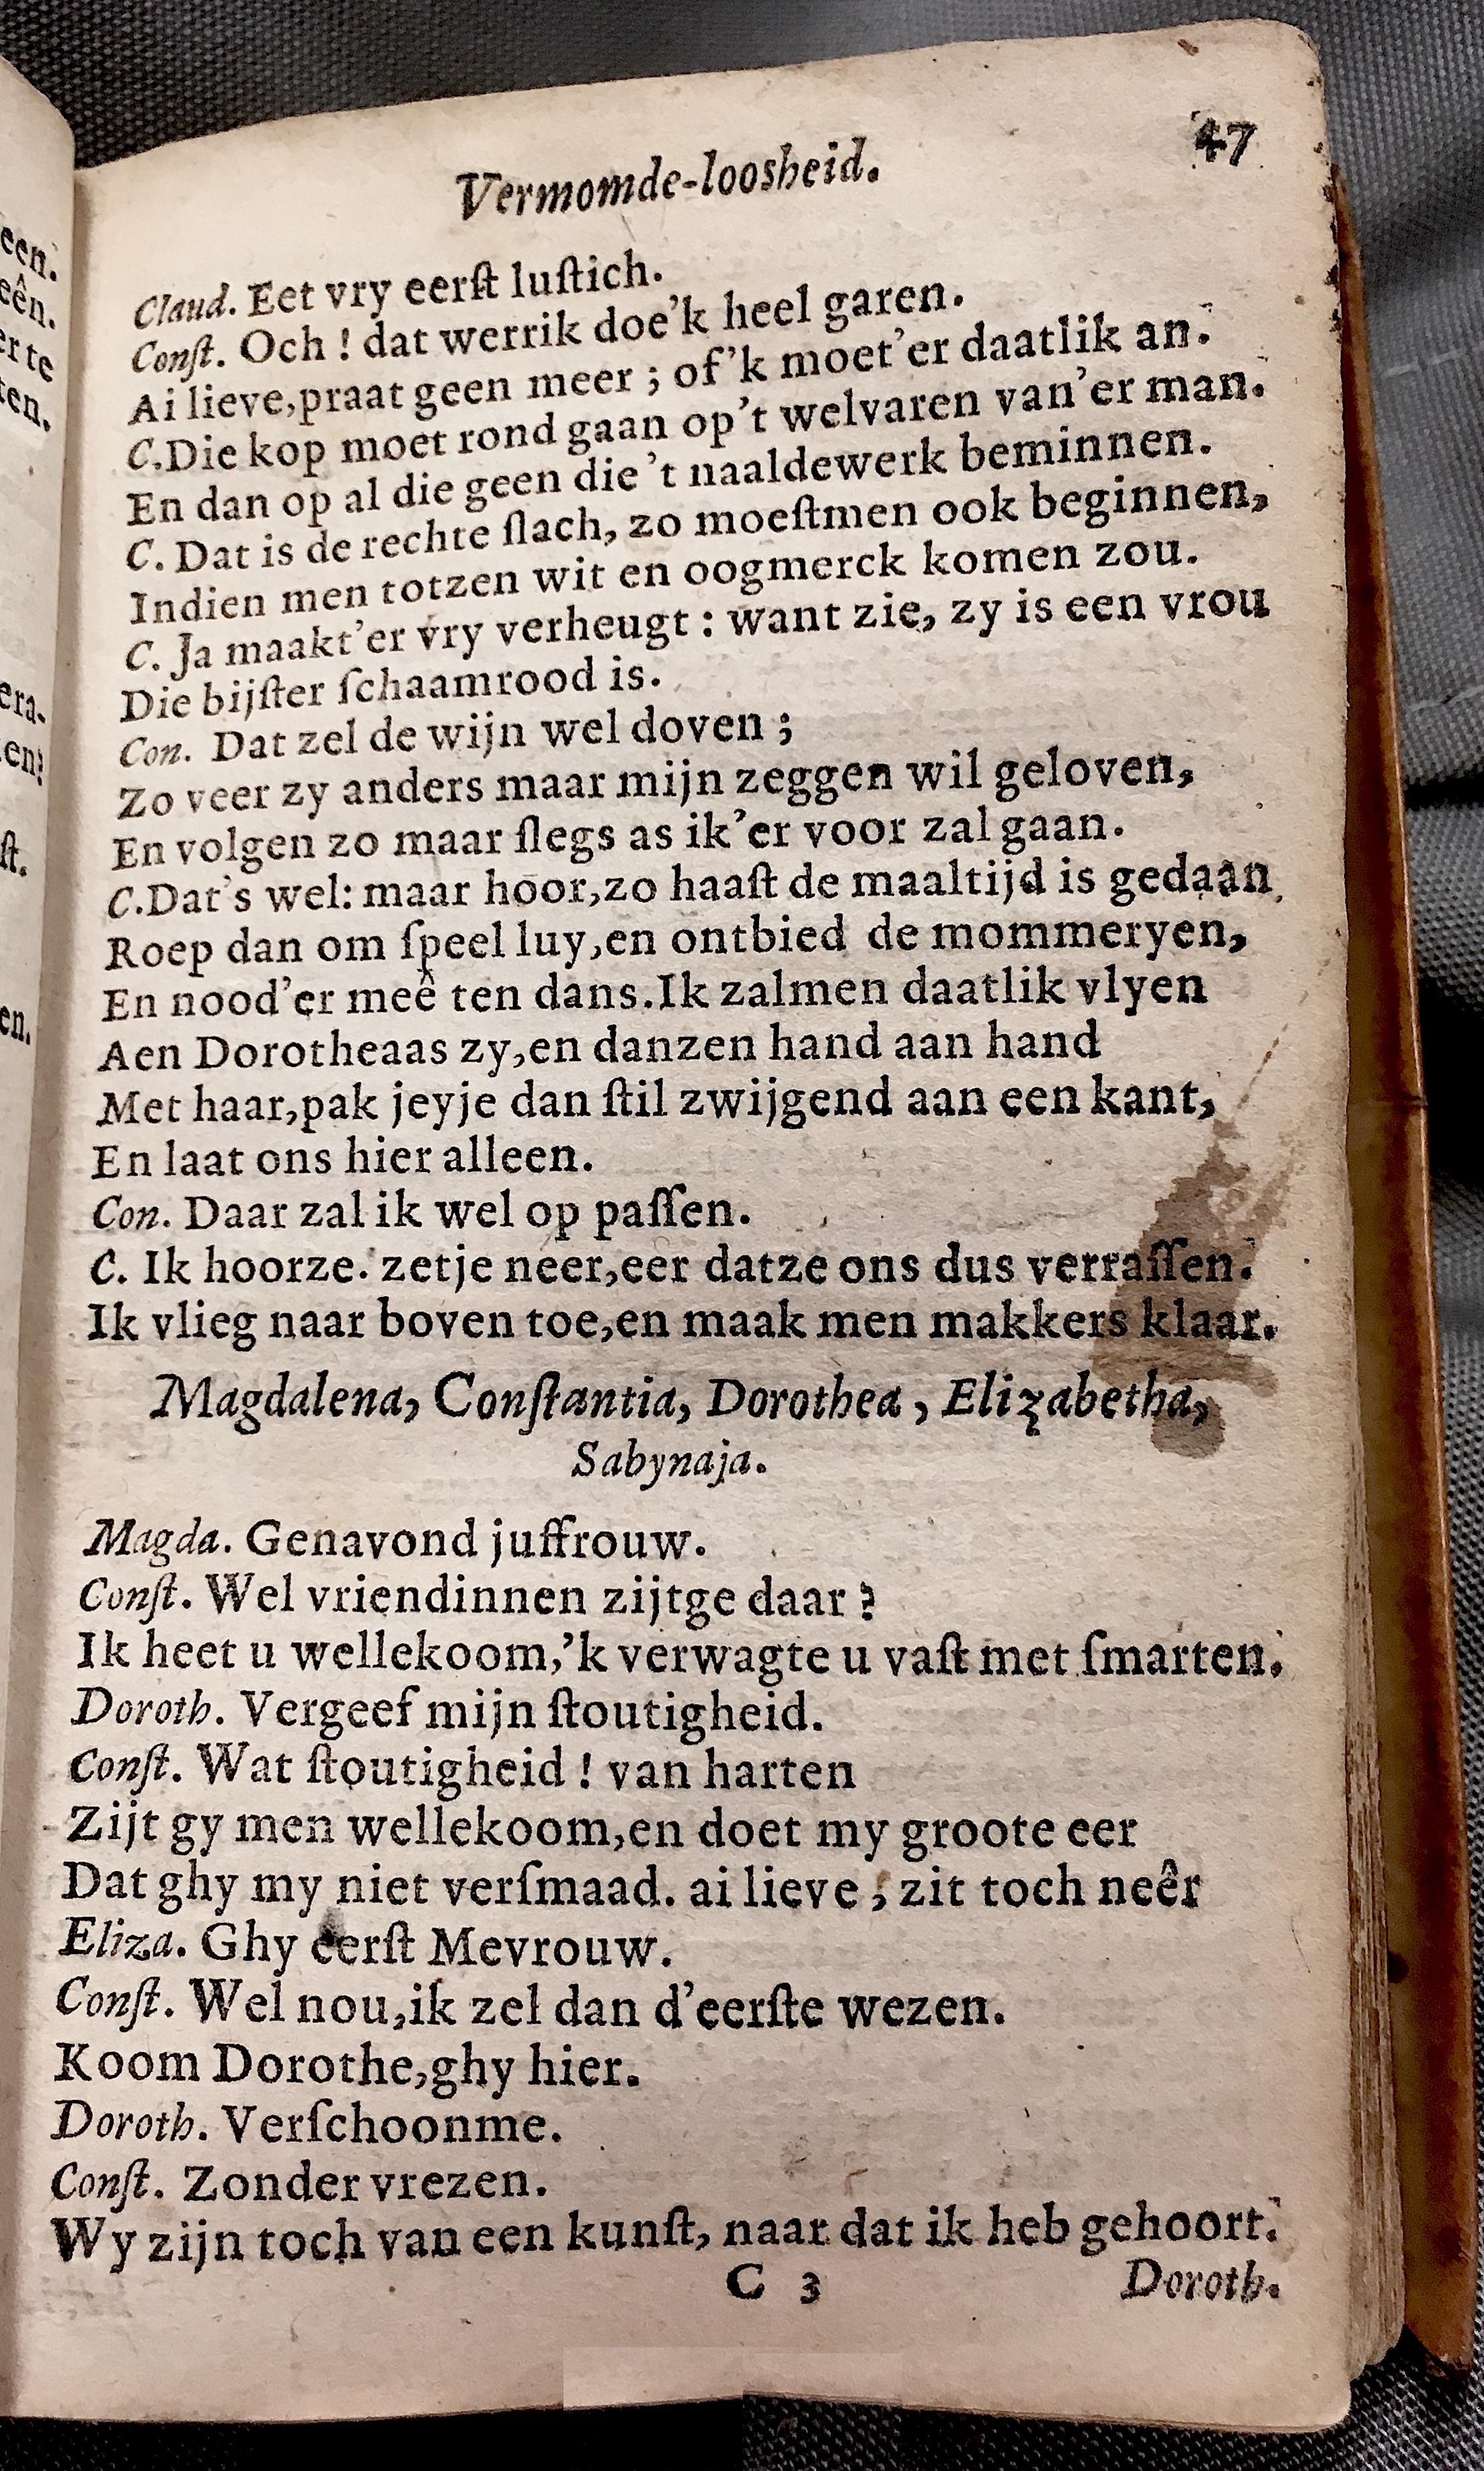 47
Vermomde-loosheid.
Claud. Eet vry eerſt luſtich.
Conſt. Och ! dat werrik doe'k heel garen.
Ai lieve,praat geen meer ; of'k moet'er daatlik an.
C.Die kop moet rond gaan op't welvaren van'er man.
En dan op al die geen die 't naaldewerk beminnen.
C. Dat is de rechte ſlach, zo moeſtmen ook beginnen,
Indien men totzen wit en oogmerck komen zou.
C. Ja maakt'er vry verheugt : want zie, zy is een vrou
Die bijſter ſchaamrood is.
Con. Dat zel de wijn wel doven ;
Zo veer zy anders maar mijn zeggen wil geloven,
En volgen zo maar ſlegs as ik'er voor zal gaan.
C.Dat's wel: maar hoor,zo haaſt de maaltijd is gedaan.
Roep dan om ſpeel luy,en ontbied de mommeryen,
En nood'er meê ten dans.Ik zalmen daatlik vlyen
Aen Dorotheaas zy,en danzen hand aan hand
Met haar,pak jeyje dan ſtil zwijgend aan een kant,
En laat ons hier alleen.
Con. Daar zal ik wel op paſſen.
C. Ik hoorze. zetje neer,eer datze ons dus verraſſen.
Ik vlieg naar boven toe,en maak men makkers klaar.
Magdalena, Conſtantia, Dorothea , Elizabetha,
Sabynaja.
Magda. Genavond juffrouw.
Conſt. Wel vriendinnen zijtge daar ?
Ik heet u wellekoom,'k verwagte u vaſt met ſmarten.
Doroth. Vergeef mijn ſtoutigheid.
Conſt. Wat ſtoutigheid ! van harten
Zijt gy men wellekoom,en doet my groote eer
Dat ghy my niet verſmaad. ai lieve ; zit toch neêr
Eliza. Ghy eerſt Mevrouw.
Conſt. Wel nou,ik zel dan d'eerſte wezen.
Koom Dorothe,ghy hier.
Doroth. Verſchoonme.
Conſt. Zonder vrezen.
Wy zijn toch van een kunſt, naar dat ik heb gehoort.
C 3
Doroth.
een.
eên.
er te
ten.
era-
en?
ſt.
en.